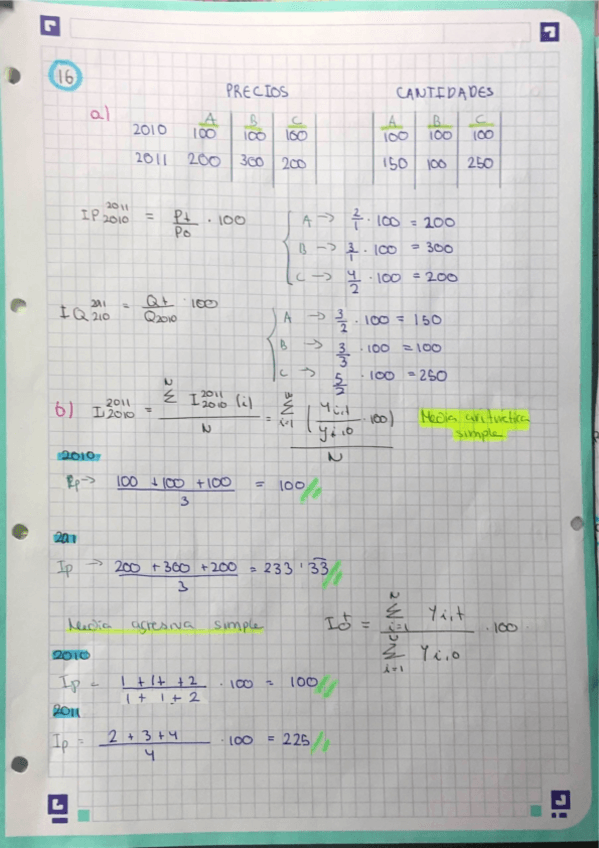 16
PRECIOS CANTIDADES
a) A B C A B C
2010 100 100 100 100 100 100
2011 200 300 200 150 100 250
IP 2011 2010 = Pt/Po · 100
A -> 2/1 · 100 = 200
B -> 3/1 · 100 = 300
C -> 4/2 · 100 = 200
IQ 2011 210 = Qt/Q2010 · 100
A -> 3/2 · 100 = 150
B -> 3/3 · 100 = 100
C -> 5/2 · 100 = 250
b) I 2011 2010 = Σ N I 2011 2010 (i) / N = Σ N i=1 (yi,t / yi,0 · 100) / N Media aritmetica
simple
2010
Ip -> 100 + 100 + 100 / 3 = 100
2011
Ip -> 200 + 300 + 200 / 3 = 233'33
Media agresiva simple I t o = Σ N i=1 Yi,t / Σ N i=1 Yi,0 · 100
2010
Ip = 1 + 1 + 2 / 1 + 1 + 2 · 100 = 100
2011
Ip = 2 + 3 + 4 / 4 · 100 = 225